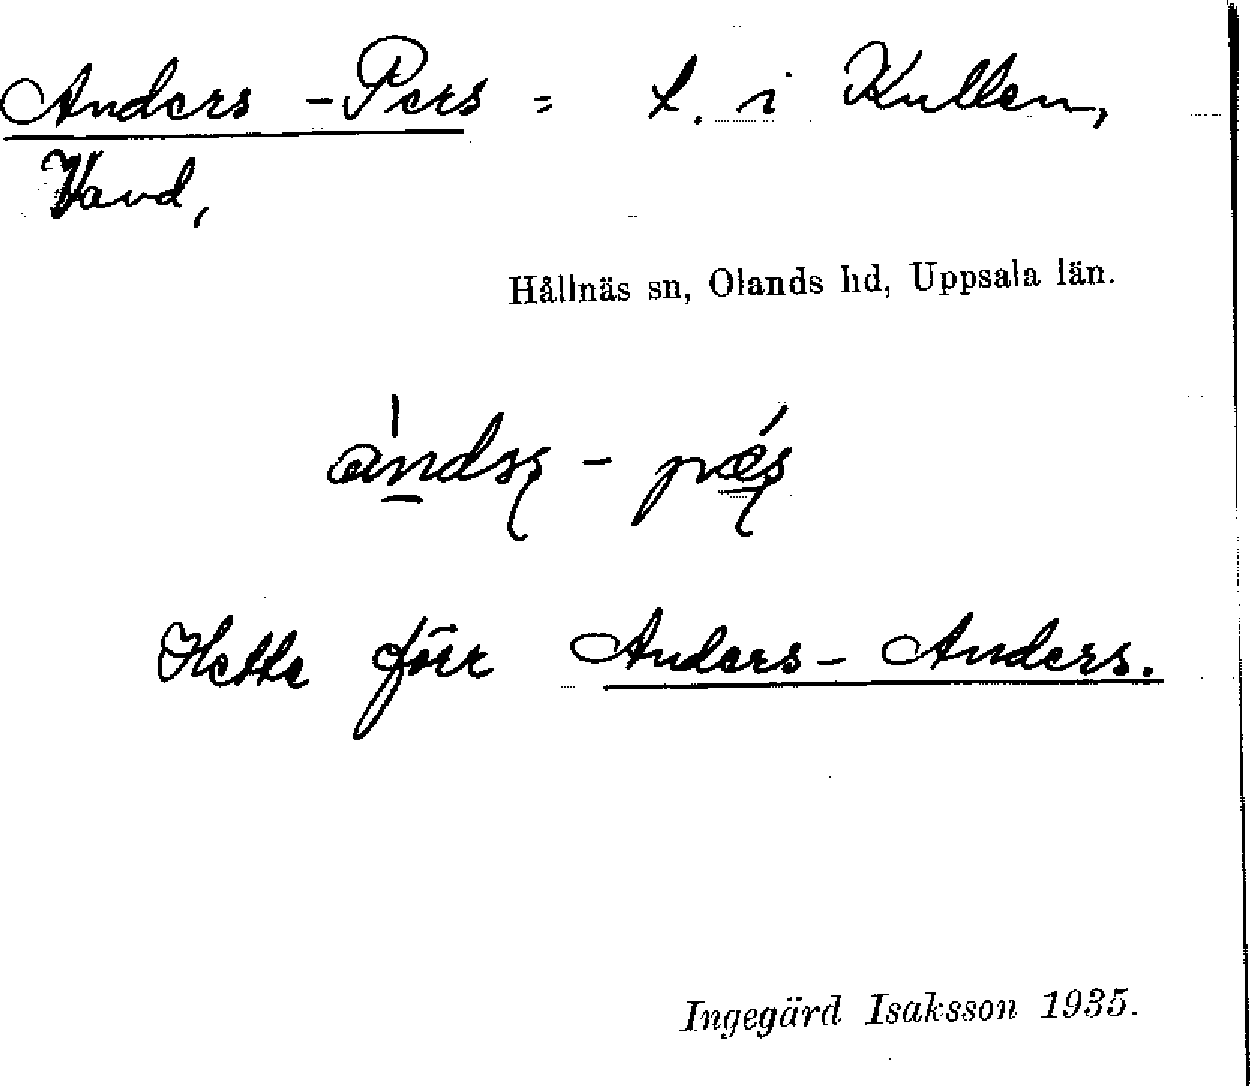 Anders-Pers = t. i Kullen,
Vavd,
Hållnäs sn, Olands hd, Uppsala län.
Hette förr Anders-Anders.
Ingegärd Isaksson 1935.